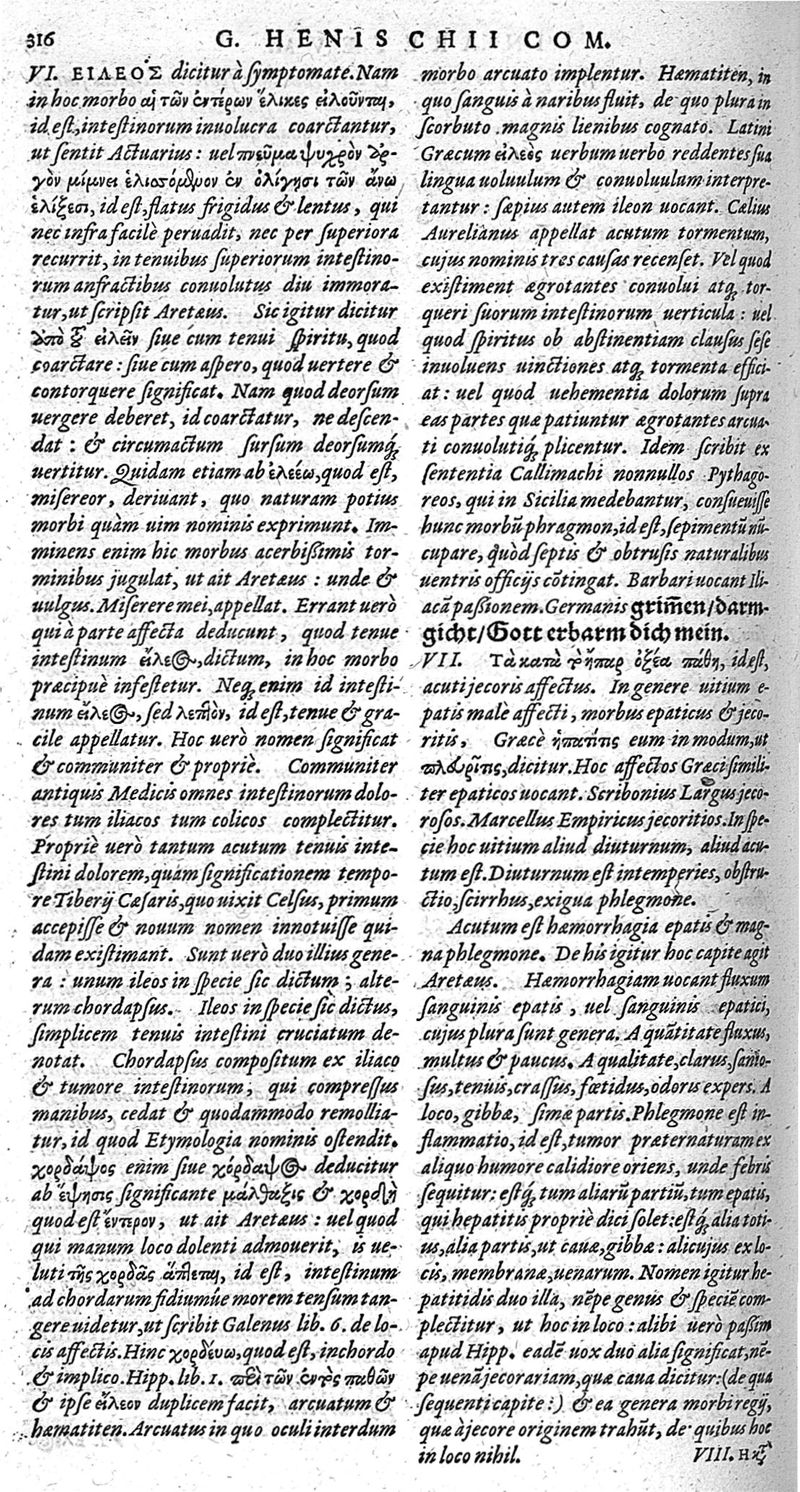 316 G. HENISCHII COM.
VI. ΕΙΛΕΟΣ dicitur à ſymptomate. Nam
in hoc morbo αἱ τῶν ἐντέρων ἕλικες εἰλοῦνται,
id eſt, inteſtinorum inuolucra coarctantur,
ut ſentit Actuarius: uel πνεῦμα ψυχρὸν ἀρ-
γὸν μίμνει ἑλισσόμενον ἐν ὀλίγησι τῶν ἄνω
ἑλίξεσι, id eſt, flatus frigidus & lentus, qui
nec infra facilè peruadit, nec per ſuperiora
recurrit, in tenuibus ſuperiorum inteſtino-
rum anfractibus conuolutus diu immora-
tur, ut ſcripſit Aretæus. Sic igitur dicitur
ἀπὸ τȣ͂ εἰλεῖν ſiue cum tenui ſpiritu, quod
coarctare: ſiue cum aſpero, quod uertere &
contorquere ſignificat. Nam quod deorſum
uergere deberet, id coarctatur, ne deſcen-
dat: & circumactum ſurſum deorſumq́;
uertitur. Quidam etiam ab ἐλεέω, quod eſt,
miſereor, deriuant, quo naturam potius
morbi quàm uim nominis exprimunt. Im-
minens enim hic morbus acerbißimis tor-
minibus jugulat, ut ait Aretæus: unde &
uulgus. Miſerere mei, appellat. Errant uerò
qui à parte affecta deducunt, quod tenue
inteſtinum εἴλεος, dictum, in hoc morbo
præcipuè infeſtetur. Neq; enim id inteſti-
num εἴλεος, ſed λεπτὸν, id eſt, tenue & gra-
cile appellatur. Hoc uerò nomen ſignificat
& communiter & propriè. Communiter
antiquis Medicis omnes inteſtinorum dolo-
res tum iliacos tum colicos complectitur.
Propriè uerò tantum acutum tenuis inte-
ſtini dolorem, quam ſignificationem tempo-
re Tiberij Cæſaris, quo uixit Celſus, primum
accepiſſe & nouum nomen innotuiſſe qui-
dam exiſtimant. Sunt uerò duo illius gene-
ra: unum ileos in ſpecie ſic dictum; alte-
rum chordapſus. Ileos in ſpecie ſic dictus,
ſimplicem tenuis inteſtini cruciatum de-
notat. Chordapſus compoſitum ex iliaco
& tumore inteſtinorum; qui compreſſus
manibus, cedat & quodammodo remollia-
tur, id quod Etymologia nominis oſtendit.
χορδάψος enim ſiue χόρδαψος deducitur
ab ἕψησις ſignificante μάλθαξις & χορδὴ
quod eſt ἔντερον, ut ait Aretæus: uel quod
qui manum loco dolenti admouerit, is ue-
luti τῆς χορδᾶς ἅπτεται, id eſt, inteſtinum
ad chordarum fidiumúe morem tenſum tan-
gere uidetur, ut ſcribit Galenus lib. 6. de lo-
cis affectis. Hinc χορδεύω, quod eſt, inchordo
& implico. Hipp. lib. 1. περὶ τῶν ἐντὸς παθῶν
& ipſe εἴλεον duplicem facit, arcuatum &
hæmatiten. Arcuatus in quo oculi interdum
morbo arcuato implentur. Hæmatiten, in
quo ſanguis à naribus fluit, de quo plura in
ſcorbuto magnis lienibus cognato. Latini
Græcum εἰλεὸς uerbum uerbo reddentes ſua
lingua uoluulum & conuoluulum interpre-
tantur: ſæpius autem ileon uocant. Cælius
Aurelianus appellat acutum tormentum,
cujus nominis tres cauſas recenſet. Vel quod
exiſtiment ægrotantes conuolui atq; tor-
queri ſuorum inteſtinorum uerticula: uel
quod ſpiritus ob abſtinentiam clauſus ſeſe
inuoluens uinctiones atq; tormenta effici-
at: uel quod uehementia dolorum ſupra
eas partes quæ patiuntur ægrotantes arcua-
ti conuolutiq́; plicentur. Idem ſcribit ex
ſententia Callimachi nonnullos Pythago-
reos, qui in Sicilia medebantur, conſueuiſſe
hunc morbū phragmon, id eſt, ſepimentū nū-
cupare, quòd ſeptis & obtruſis naturalibus
uentris officijs cōtingat. Barbari uocant Ili-
acā paßionem. Germanis grim̃en/darm-
gicht/Gott erbarm dich mein.
VII. Τὰ κατὰ τὸ ἧπαρ ὀξέα πάθη, id eſt,
acuti jecoris affectus. In genere uitium e-
patis malè affecti, morbus epaticus & jeco-
ritis, Græcè ἡπατῖτις eum in modum, ut
πλευρῖτις, dicitur. Hoc affectos Græci ſimili-
ter epaticos uocant. Scribonius Largus jeco-
roſos. Marcellus Empiricus jecoritios. In ſpe-
cie hoc uitium aliud diuturnum, aliud acu-
tum eſt. Diuturnum eſt intemperies, obſtru-
ctio, ſcirrhus, exigua phlegmone.
Acutum eſt hæmorrhagia epatis & mag-
na phlegmone. De his igitur hoc capite agit
Aretæus. Hæmorrhagiam uocant fluxum
ſanguinis epatis, uel ſanguinis epatici,
cujus plura ſunt genera. A quātitate fluxus,
multus & paucus. A qualitate, clarus, ſanio-
ſus, tenuis, craſſus, fœtidus, odoris expers. A
loco, gibbæ, ſimæ partis. Phlegmone eſt in-
flammatio, id eſt, tumor præter naturam ex
aliquo humore calidiore oriens, unde febris
ſequitur: eſtq́; tum aliarū partiū, tum epatis,
qui hepatitis propriè dici ſolet: eſtq́; alia toti-
us, alia partis, ut cauæ, gibbæ: alicujus ex lo-
cis, membranæ, uenarum. Nomen igitur he-
patitidis duo illa, nēpe genus & ſpeciē com-
plectitur, ut hoc in loco: alibi uerò paßim
apud Hipp. eadē uox duo alia ſignificat, nē-
pe uenā jecorariam, quæ caua dicitur: (de qua
ſequenti capite:) & ea genera morbi regij,
quæ à jecore originem trahūt, de quibus hoc
in loco nihil. VIII. Ηκ